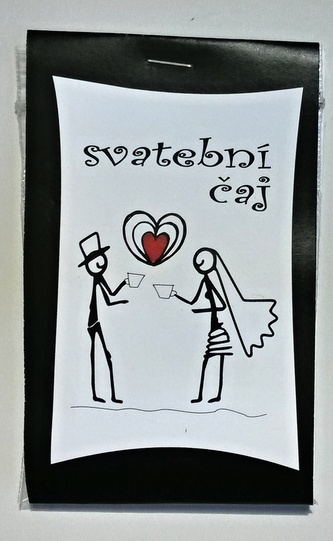 svatební
čaj